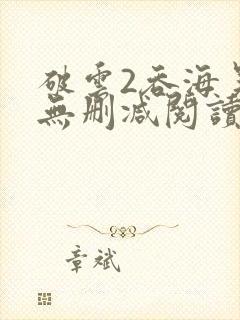 破雲2吞海
無刪減閱讀
章斌